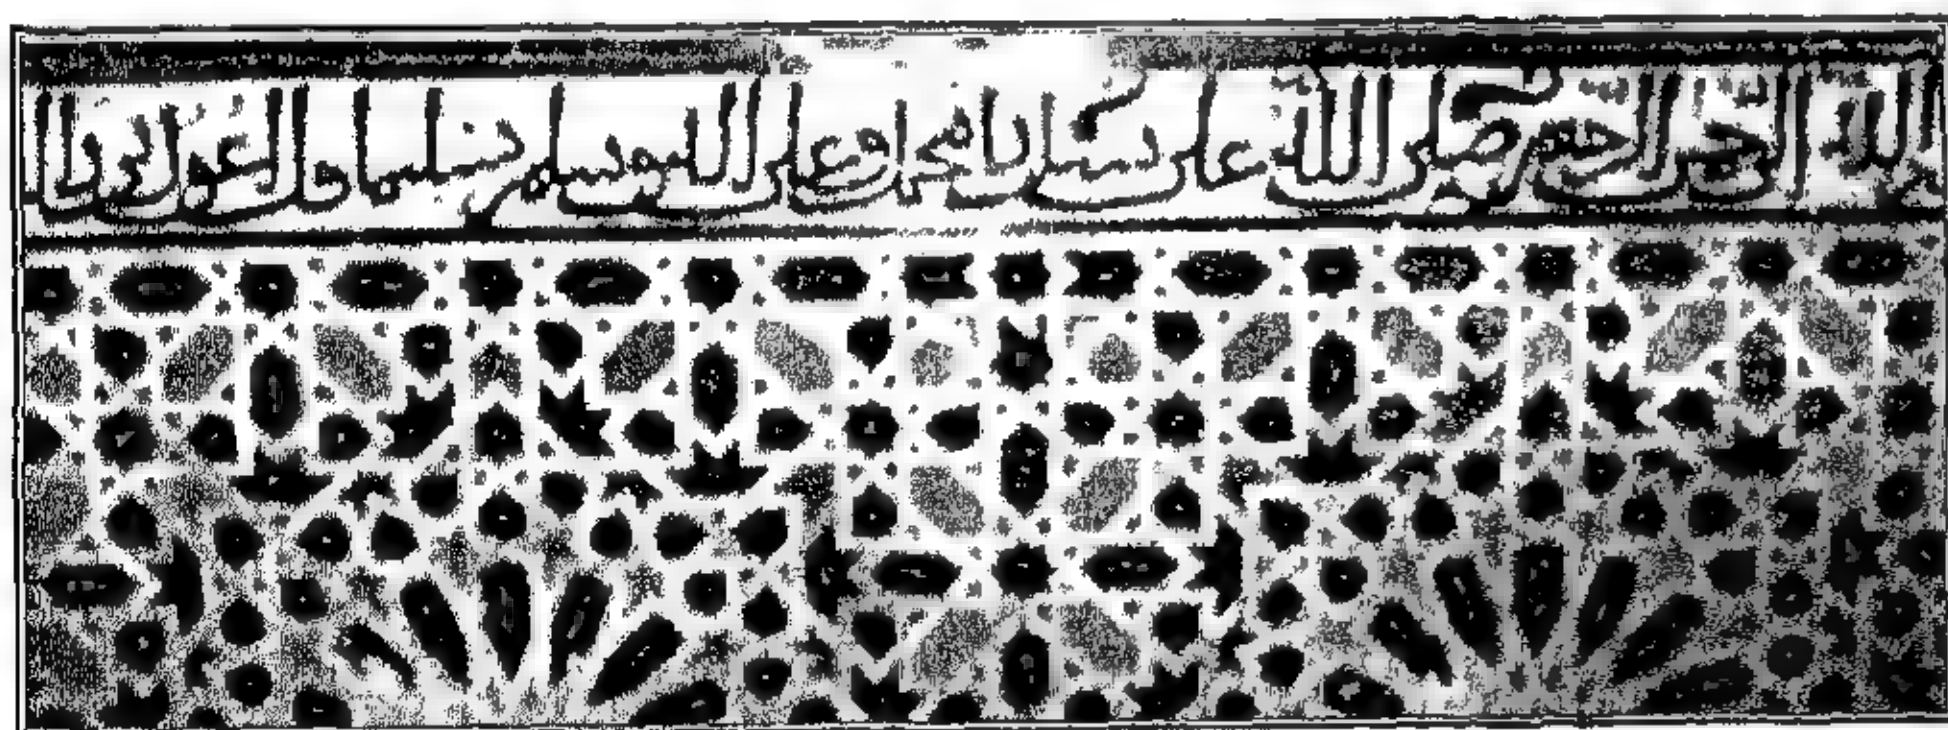 الله الرحمن الرحيم صلى الله على سيدنا محمد وعلى اله وسلم تسليما